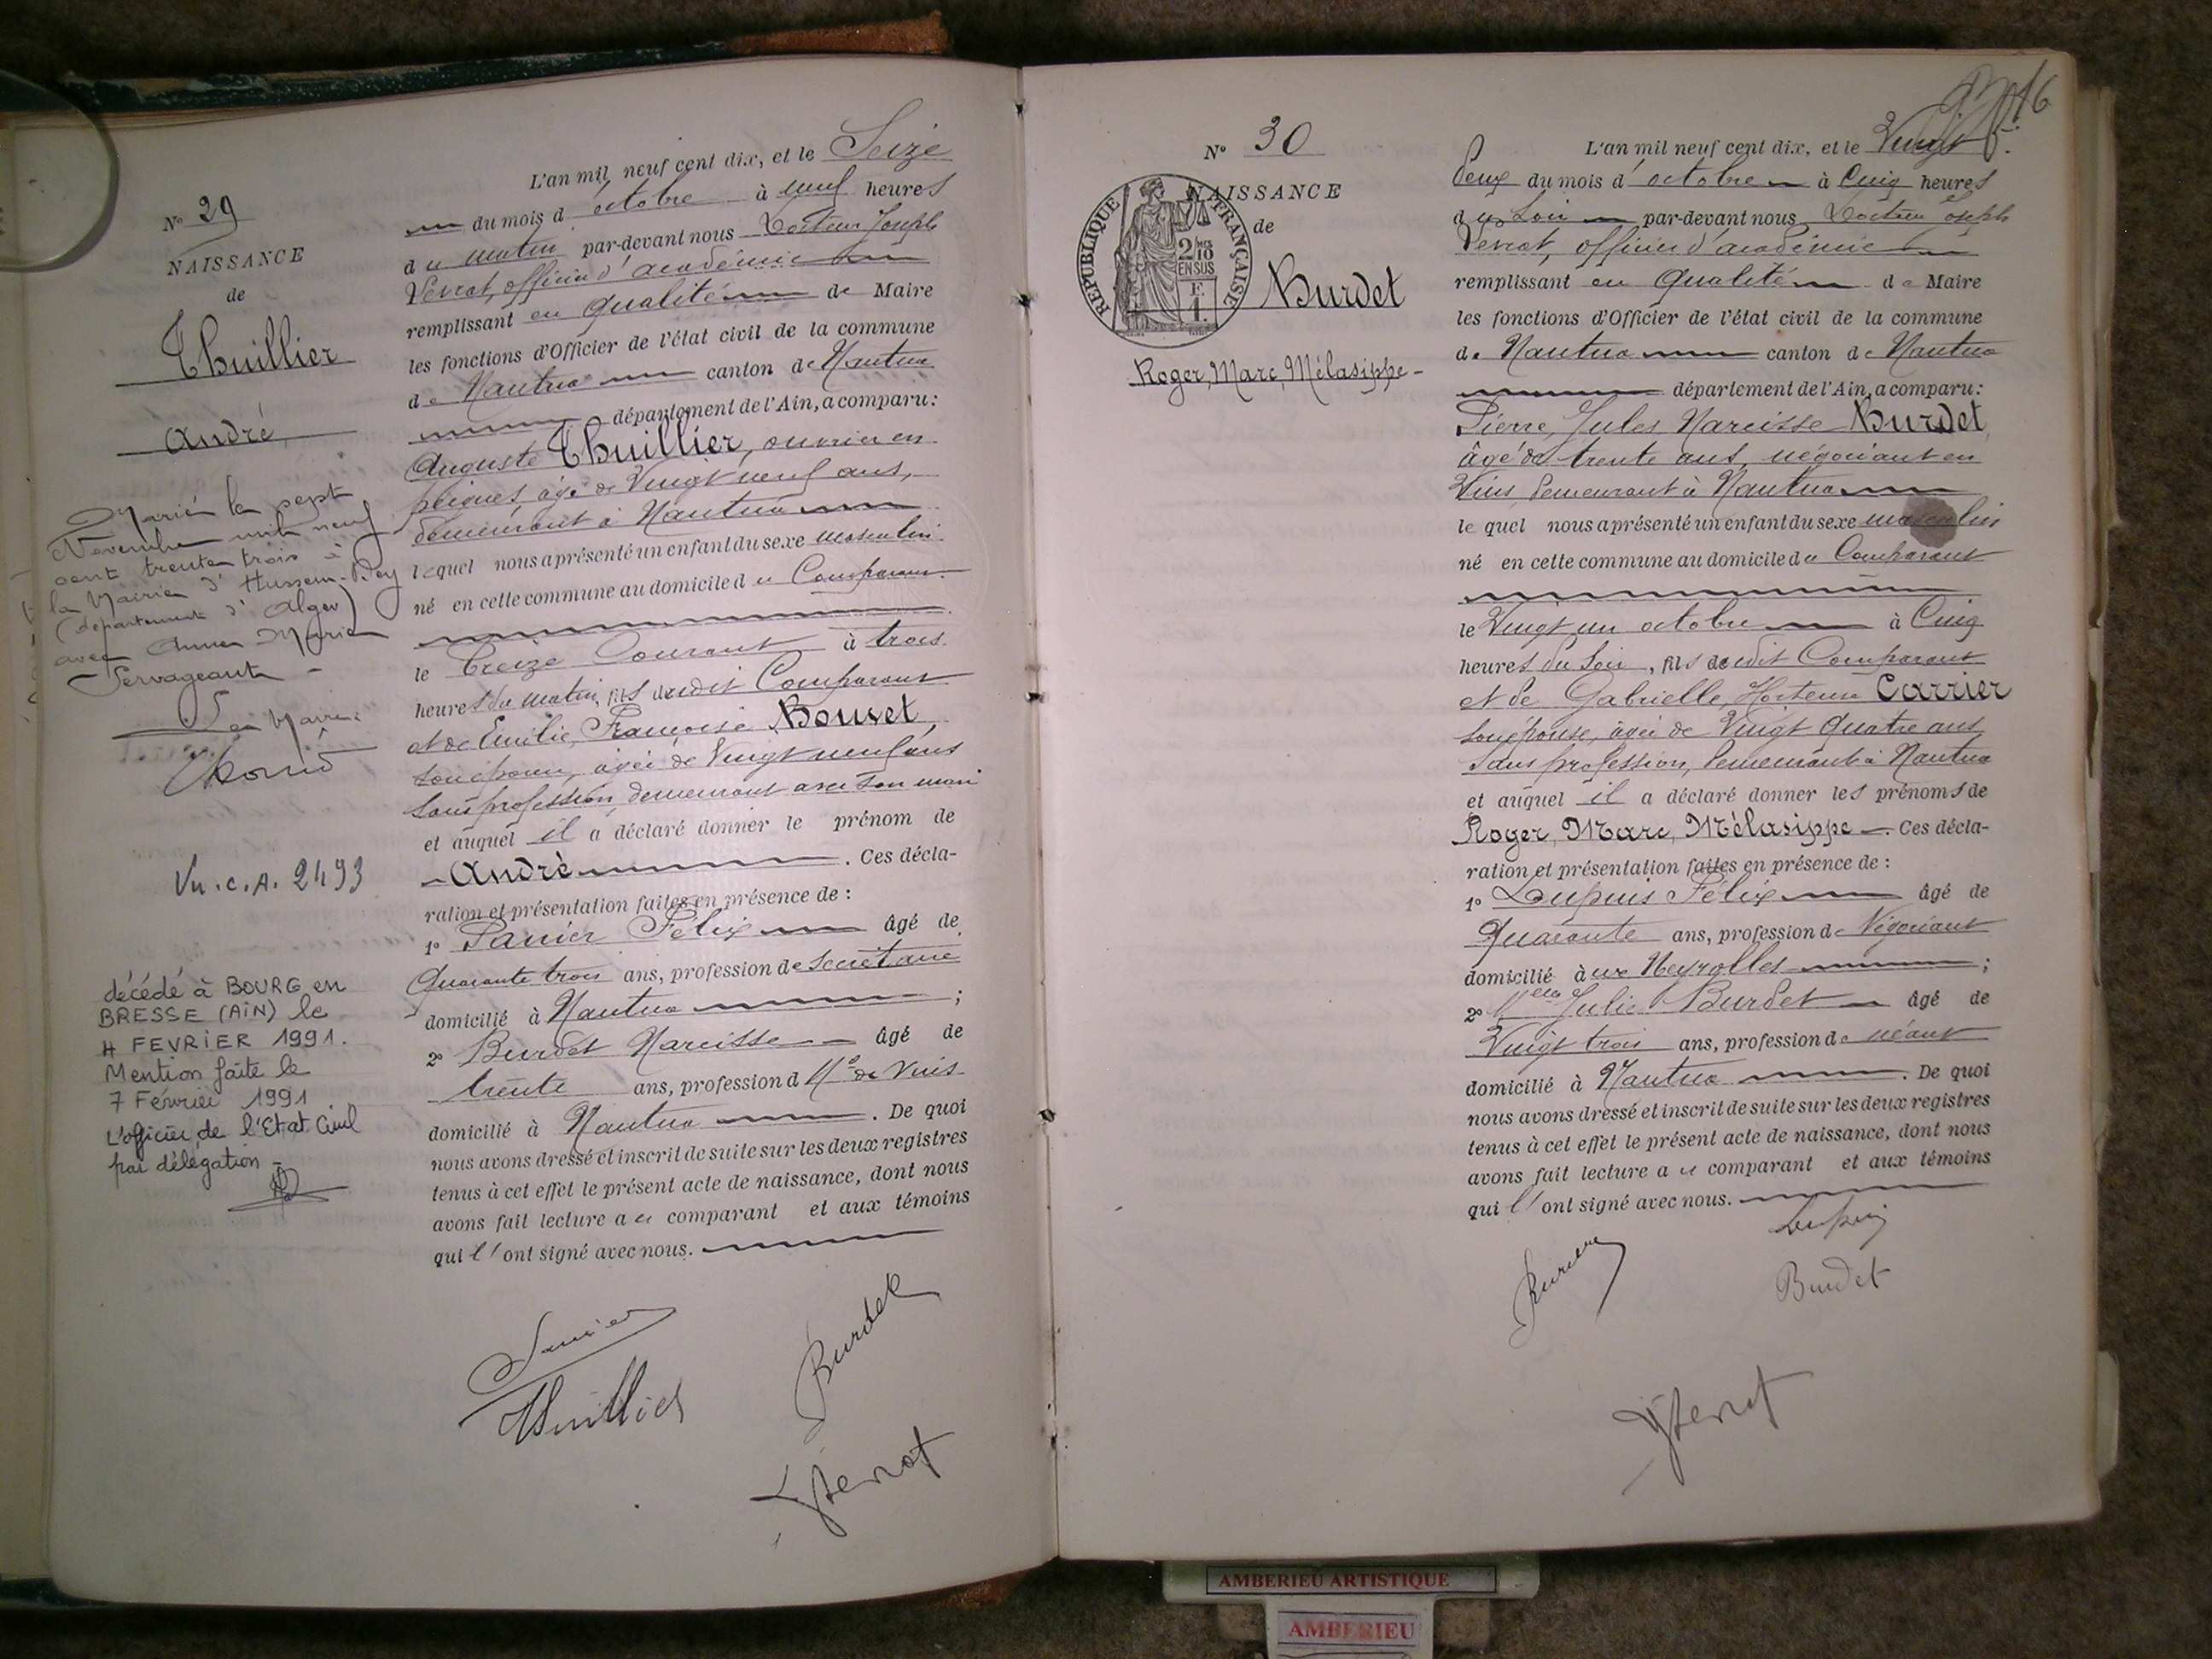 N° 29
NAISSANCE
de
Thuillier
André
Marié le sept
Novembre mil neuf
cent trente trois à
la Mairie d'Hussein-Dey
(département d'Alger)
avec Anne Marie
Servageant
Le Maire:
Vu.C.A. 2493
décédé à BOURG en
BRESSE (AIN) le
4 FEVRIER 1991.
Mention faite le
7 Février 1991
L'officier de l'Etat Civil
par délégation
L'an mil neuf cent dix, et le Seize
du mois d'octobre à neuf heures
du matin par-devant nous Docteur Joseph
Verrot, officier d'académie
remplissant en qualité de Maire
les fonctions d'Officier de l'état civil de la commune
de Nantua canton de Nantua
département de l'Ain, a comparu:
Auguste Thuillier, ouvrier en
peignes, âgé de Vingt neuf ans,
demeurant à Nantua
lequel nous a présenté un enfant du sexe masculin
né en cette commune au domicile du Comparant
le treize Courant à trois
heures du matin, fils dudit Comparant
et de Emilie, Françoise Bouvet,
son épouse, âgée de Vingt neuf ans
sans profession, demeurant avec son mari
et auquel il a déclaré donner le prénom de
André. Ces décla-
ration et présentation faites en présence de :
1° Panier Félix âgé de
Quarante trois ans, profession de secrétaire
domicilié à Nantua ;
2° Burdet Narcisse âgé de
trente ans, profession d Md de Vins
domicilié à Nantua. De quoi
nous avons dressé et inscrit de suite sur les deux registres
tenus à cet effet le présent acte de naissance, dont nous
avons fait lecture au comparant et aux témoins
qui l'ont signé avec nous.
Panier
Burdet
Thuillier
N° 30
NAISSANCE
de
REPUBLIQUE FRANÇAISE
2/10
EN SUS
F.
1.
Burdet
Roger, Marc, Mélasippe
16
L'an mil neuf cent dix, et le Vingt
deux du mois d'octobre à Cinq heures
du soir par-devant nous Docteur Joseph
Verrot, officier d'académie
remplissant en qualité de Maire
les fonctions d'Officier de l'état civil de la commune
de Nantua canton de Nantua
département de l'Ain, a comparu:
Pierre, Jules Narcisse Burdet,
âgé de trente ans, négociant en
Vins demeurant à Nantua
lequel nous a présenté un enfant du sexe masculin
né en cette commune au domicile du Comparant
le Vingt un octobre à Cinq
heures du soir, fils dudit Comparant
et de Gabrielle, Hortense Carrier
son épouse, âgée de Vingt quatre ans
sans profession, demeurant à Nantua
et auquel il a déclaré donner les prénoms de
Roger, Marc, Mélasippe. Ces décla-
ration et présentation faites en présence de :
1° Dupuis Félix âgé de
Quarante ans, profession de Négociant
domicilié à ux Neyrolles ;
2° Melle Julie Burdet âgé de
Vingt trois ans, profession de néant
domicilié à Nantua. De quoi
nous avons dressé et inscrit de suite sur les deux registres
tenus à cet effet le présent acte de naissance, dont nous
avons fait lecture au comparant et aux témoins
qui l'ont signé avec nous.
Dupuis
Burdet
AMBERIEU ARTISTIQUE
AMBERIEU